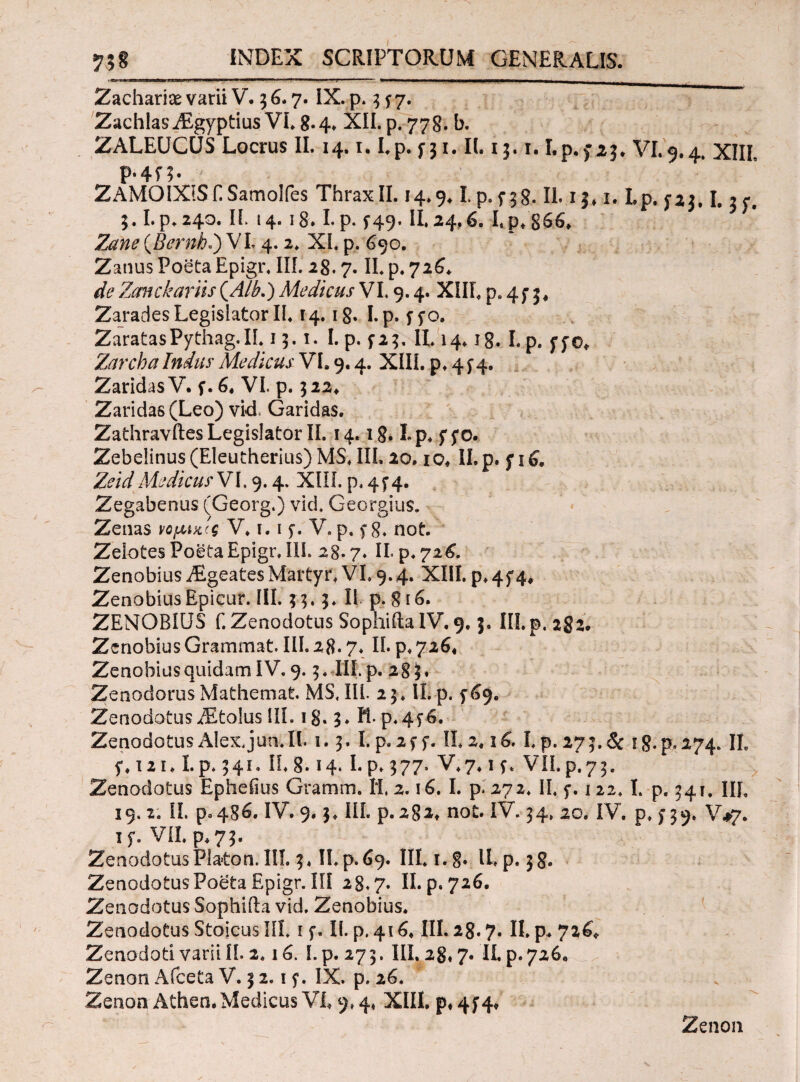 738 INDEX SCRIPTORUM GENERALIS.
Zachariæ varii V. 36. 7. IX. p. 357.
Zachlas Ægyptius VI. 8. 4. XII. p. 778. b.
ZALEUCUS Locrus II. 14. 1. I. p. 531. II. 13. 1. I. p. 523. VI. 9. 4. XIII.
p. 453.
ZAMOIXIS ſ. Samolſes Thrax II. 14. 9. I. p. 538. II. 13. 1. I. p. 523. I. 35.
3. I. p. 240. II. 14. 18. I. p. 549. II. 24. 6. I. p. 866.
Zane (Bernh.) VI. 4. 2. XI. p. 690.
Zanus Poëta Epigr. III. 28. 7. II. p. 726.
de Zanckariis (Alb.) Medicus VI. 9. 4. XIII. p. 453.
Zarades Legislator II. 14. 18. I. p. 550.
Zaratas Pythag. II. 13. 1. I. p. 523. II. 14. 18. I. p. 550.
Zarcha Indus Medicus VI. 9. 4. XIII. p. 454.
Zaridas V. 5. 6. VI. p. 322.
Zaridas (Leo) vid. Garidas.
Zathravſtes Legislator II. 14. 18. I. p. 550.
Zebelinus (Eleutherius) MS. III. 20. 10. II. p. 516.
Zeid Medicus VI. 9. 4. XIII. p. 454.
Zegabenus (Georg.) vid. Georgius.
Zenas νομικὸς V. 1. 15. V. p. 58. not.
Zelotes Poëta Epigr. III. 28. 7. II. p. 726.
Zenobius Ægeates Martyr. VI. 9. 4. XIII. p. 454.
Zenobius Epicur. III. 33. 3. II. p. 816.
ZENOBIUS ſ. Zenodotus Sophiſta IV. 9. 3. III. p. 282.
Zenobius Grammat. III. 28. 7. II. p. 726.
Zenobius quidam IV. 9. 3. III. p. 283.
Zenodorus Mathemat. MS. III. 23. II. p. 569.
Zenodotus Ætolus III. 18. 3. II. p. 456.
Zenodotus Alex. jun. II. 1. 3. I. p. 255. II. 2. 16. I. p. 273. & 18. p. 274. II.
5. 121. I. p. 341. II. 8. 14. I. p. 377. V. 7. 15. VII. p. 73.
Zenodotus Epheſius Gramm. II. 2. 16. I. p. 272. II. 5. 122. I. p. 341. III.
19. 2. II. p. 486. IV. 9. 3. III. p. 282. not. IV. 34. 20. IV. p. 539. V. 7.
15. VII. p. 73.
Zenodotus Platon. III. 3. II. p. 69. III. 1. 8. II. p. 38.
Zenodotus Poëta Epigr. III 28. 7. II. p. 726.
Zenodotus Sophiſta vid. Zenobius.
Zenodotus Stoicus III. 15. II. p. 416. III. 28. 7. II. p. 726.
Zenodoti varii II. 2. 16. I. p. 273. III. 28. 7. II. p. 726.
Zenon Aſceta V. 32. 15. IX. p. 26.
Zenon Athen. Medicus VI. 9. 4. XIII. p. 454.
Zenon